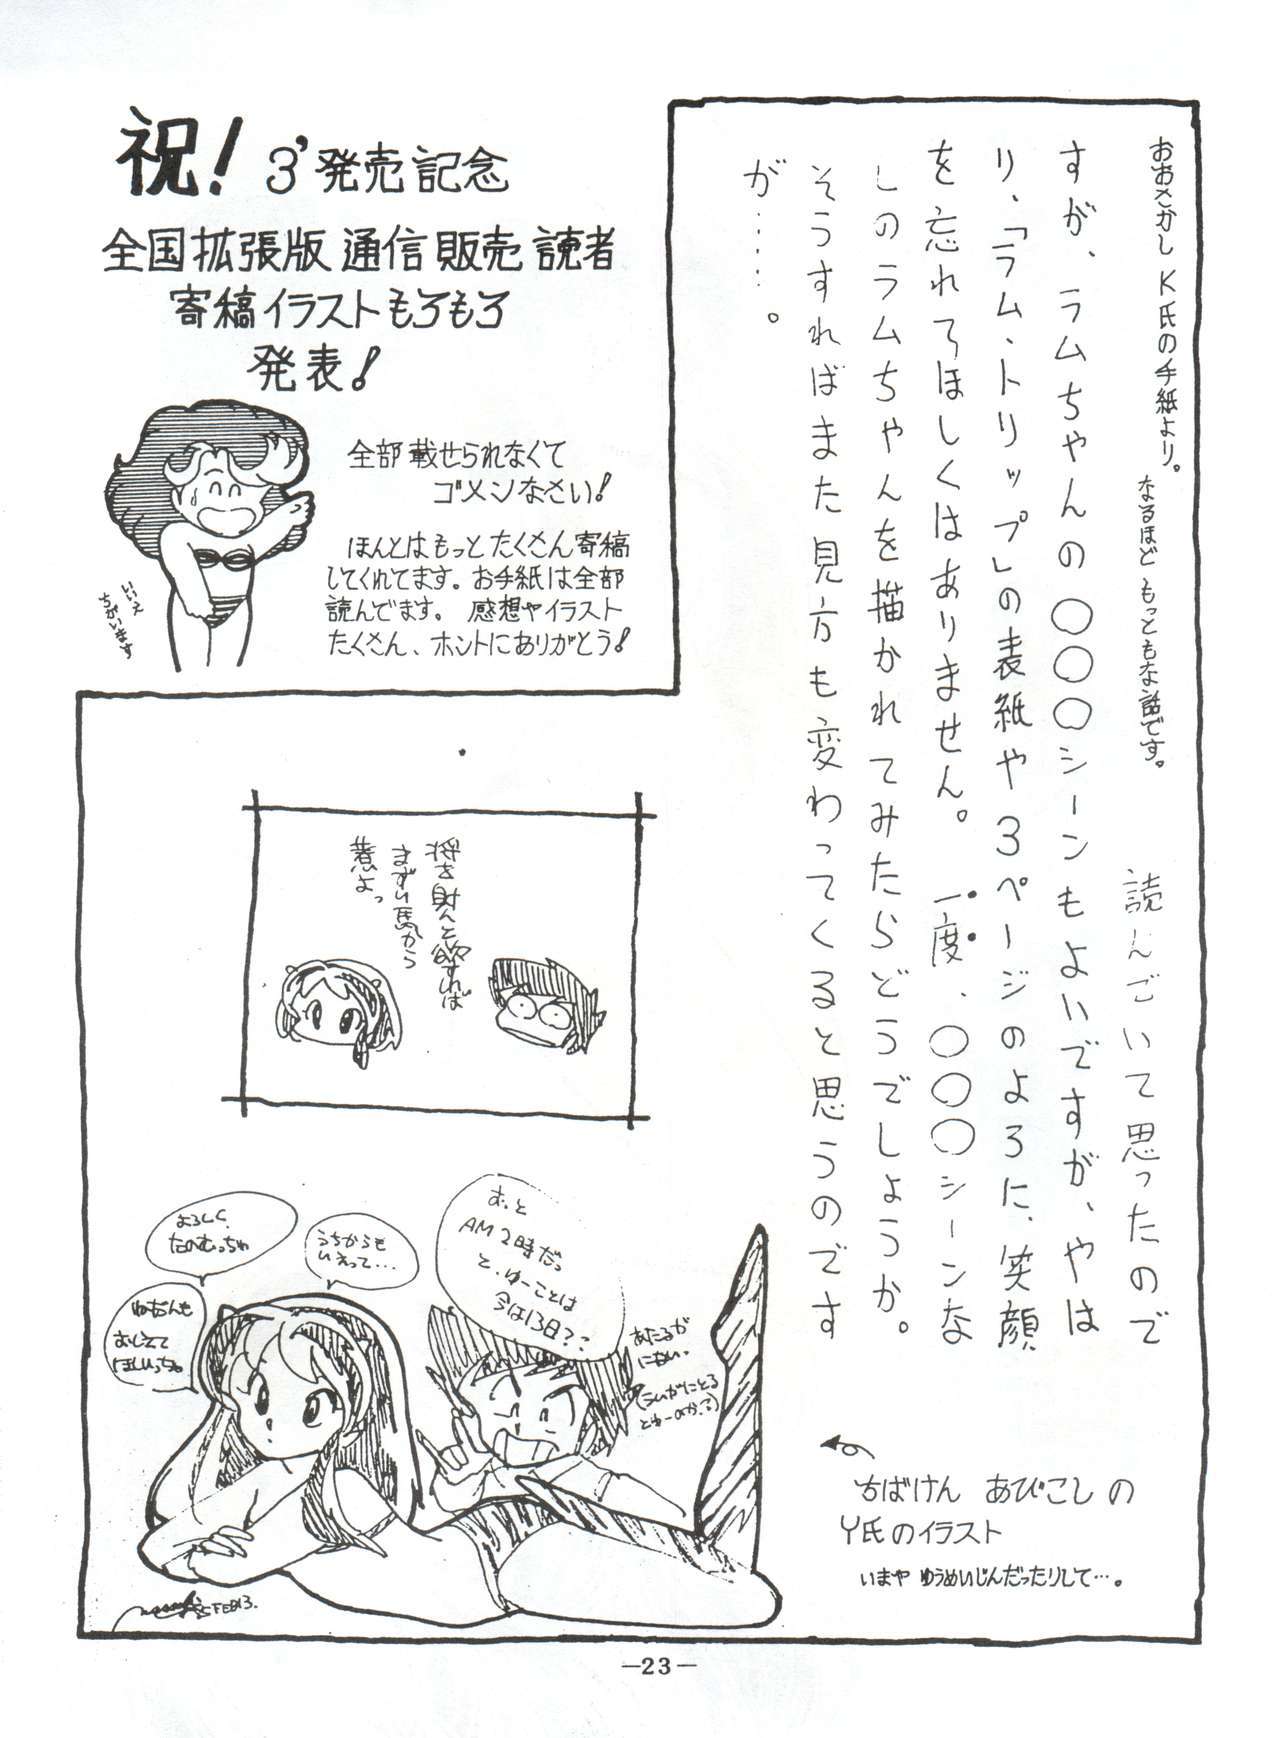 祝! 3'発売記念
全国拡張版 通信販売 読者
寄稿イラストもろもろ
発表!
全部 載せられなくて
ゴメンなさい!
ほんとはもっとたくさん寄稿
してくれてます。お手紙は全部
読んでます。 感想やイラスト
たくさん、ホントにありがとう!
いいえ
ちがいます
おおさかし K氏の手紙より。
なるほど もっともな話です。
読んでいて思ったので
すが、ラムちゃんの〇〇〇シーンもよいですが、やは
り、「ラム・トリップ」の表紙や3ページのように、笑顔
を忘れてほしくはありません。 一度、〇〇〇シーンな
しのラムちゃんを描かれてみたらどうでしょうか。
そうすればまた見方も変わってくると思うのです
が……。
将を射んと欲すれば
まずい馬から
よっ
おっと
AM2時だっ
と、ゆーことは
今は13日??
うちからも
いえって…
よろしく
たのむっちゃ
おしえて
ほしいっちゃ
あたるが
にない…
ちばけん あびこしの
Y氏のイラスト
いまや ゆうめいじんだったりして…。
FEB13.
—23—